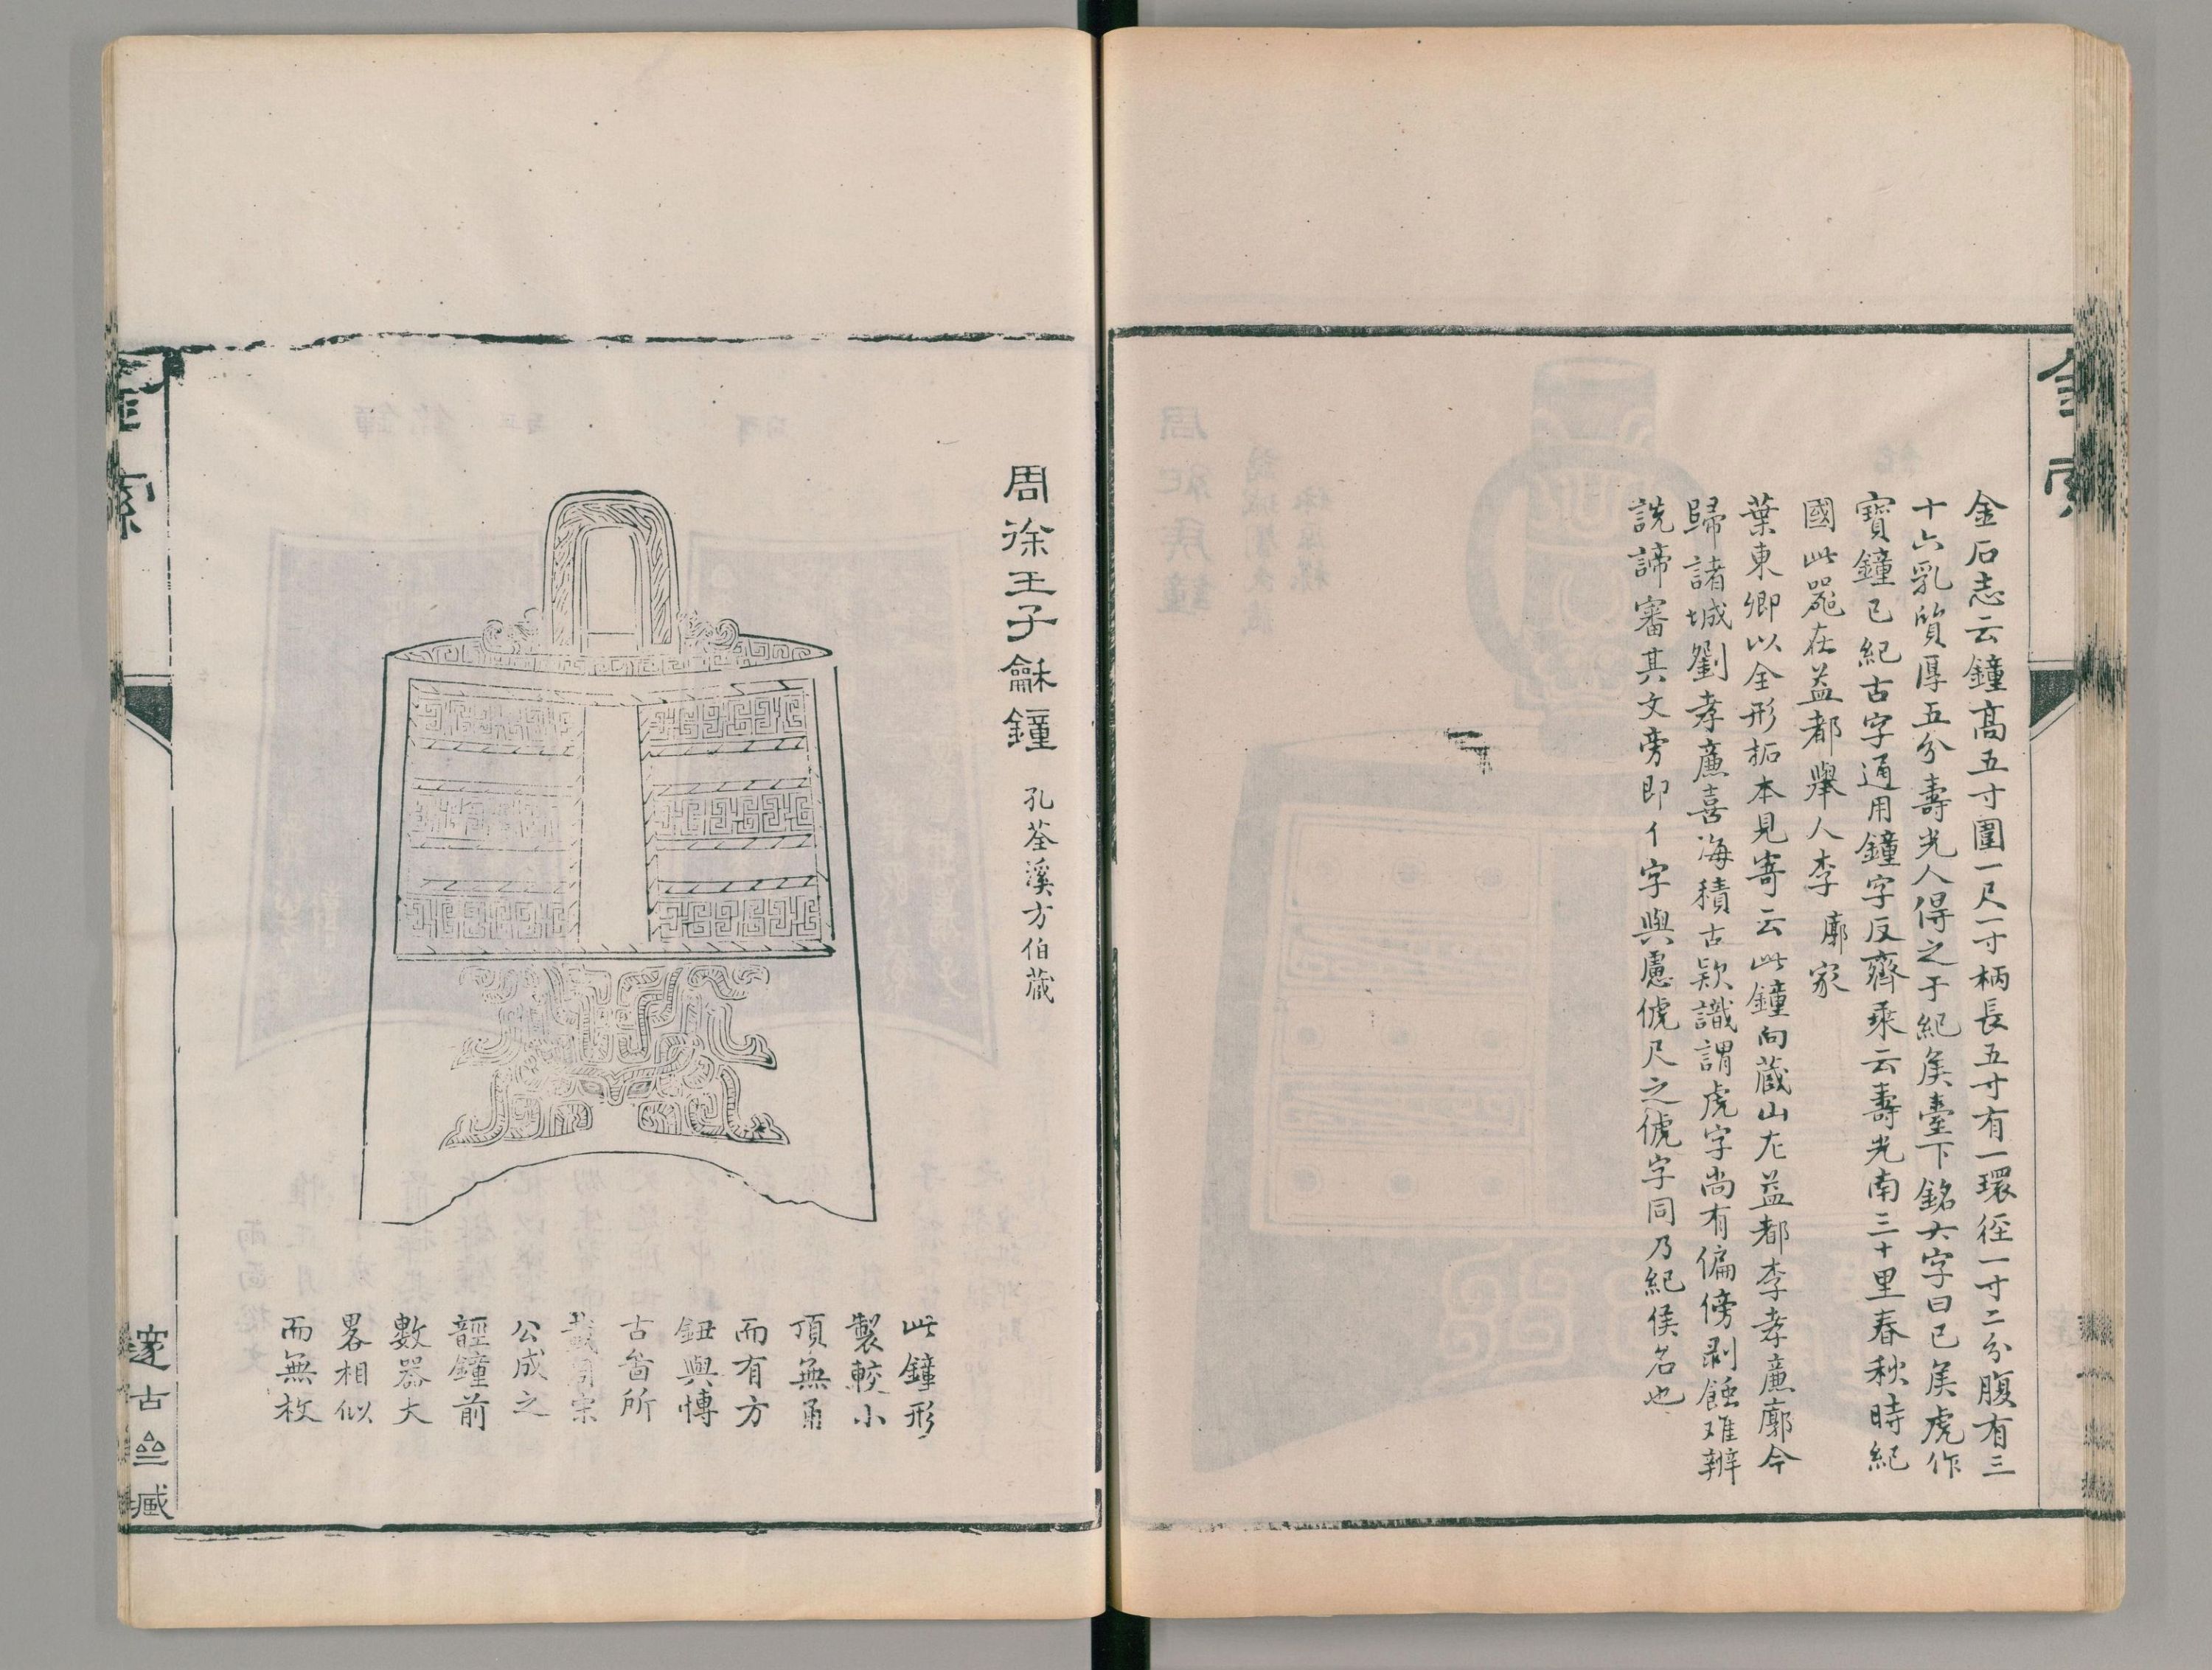 金石志云鐘高五寸圍一尺一寸柄長五寸有一環徑一寸二分腹有三
十六乳質厚五分壽光人得之于紀矦臺下銘六字曰己矦虎作
寶鐘己紀古字通用鐘字反齊乘云壽光南三十里春秋時紀
國此器在益都舉人李廓家
葉東卿以全形拓本見寄云此鐘向藏山左益都李孝廉廓今
歸諸城劉孝廉喜海積古欵識謂虎字尚有偏傍剝蝕难辨
說諦審其文旁即亻字與慮俿尺之俿字同乃紀侯名也
周徐王子龢鐘
孔荃溪方伯藏
此鐘形
製較小
頂無甬
而有方
鈕與愽
古啚所
載周宗
公成之
䪫鐘前
數器大
畧相似
而無枚
金索
邃古亝臧